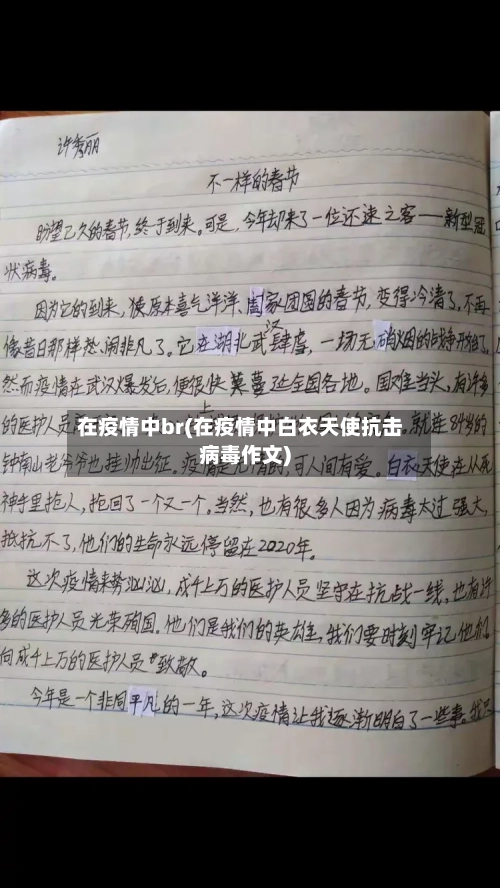 许秀丽
不一样的春节
盼望已久的春节,终于到来。可是,今年却来了一位还速之客——新型冠
状病毒。
因为它的到来,使原本喜气洋洋、阖家团圆的春节,变得冷清了,不再
像昔日那样热闹非凡了。它在湖北武汉肆虐,一场无硝烟的战争开始了。
然而疫情在武汉爆发后,便很快蔓延全国各地。国难当头,有许多
的医护人员
就连84岁的
在疫情中br(在疫情中白衣天使抗击
病毒作文)
钟南山老爷爷也挂帅出征。疫情是无情的,可人间有爱。白衣天使在从死
神手里抢人,抢回了一个又一个。当然,也有很多人因为病毒太过强大,
抵抗不了,他们的生命永远停留在2020年。
这次疫情来势汹汹,成千上万的医护人员坚守在抗战一线,也有许
多的医护人员光荣殉国。他们是我们的英雄,我们要时刻牢记他们,
向成千上万的医护人员致敬。
今年是一个非同平凡的一年,这次疫情让我逐渐明白了一些事。我